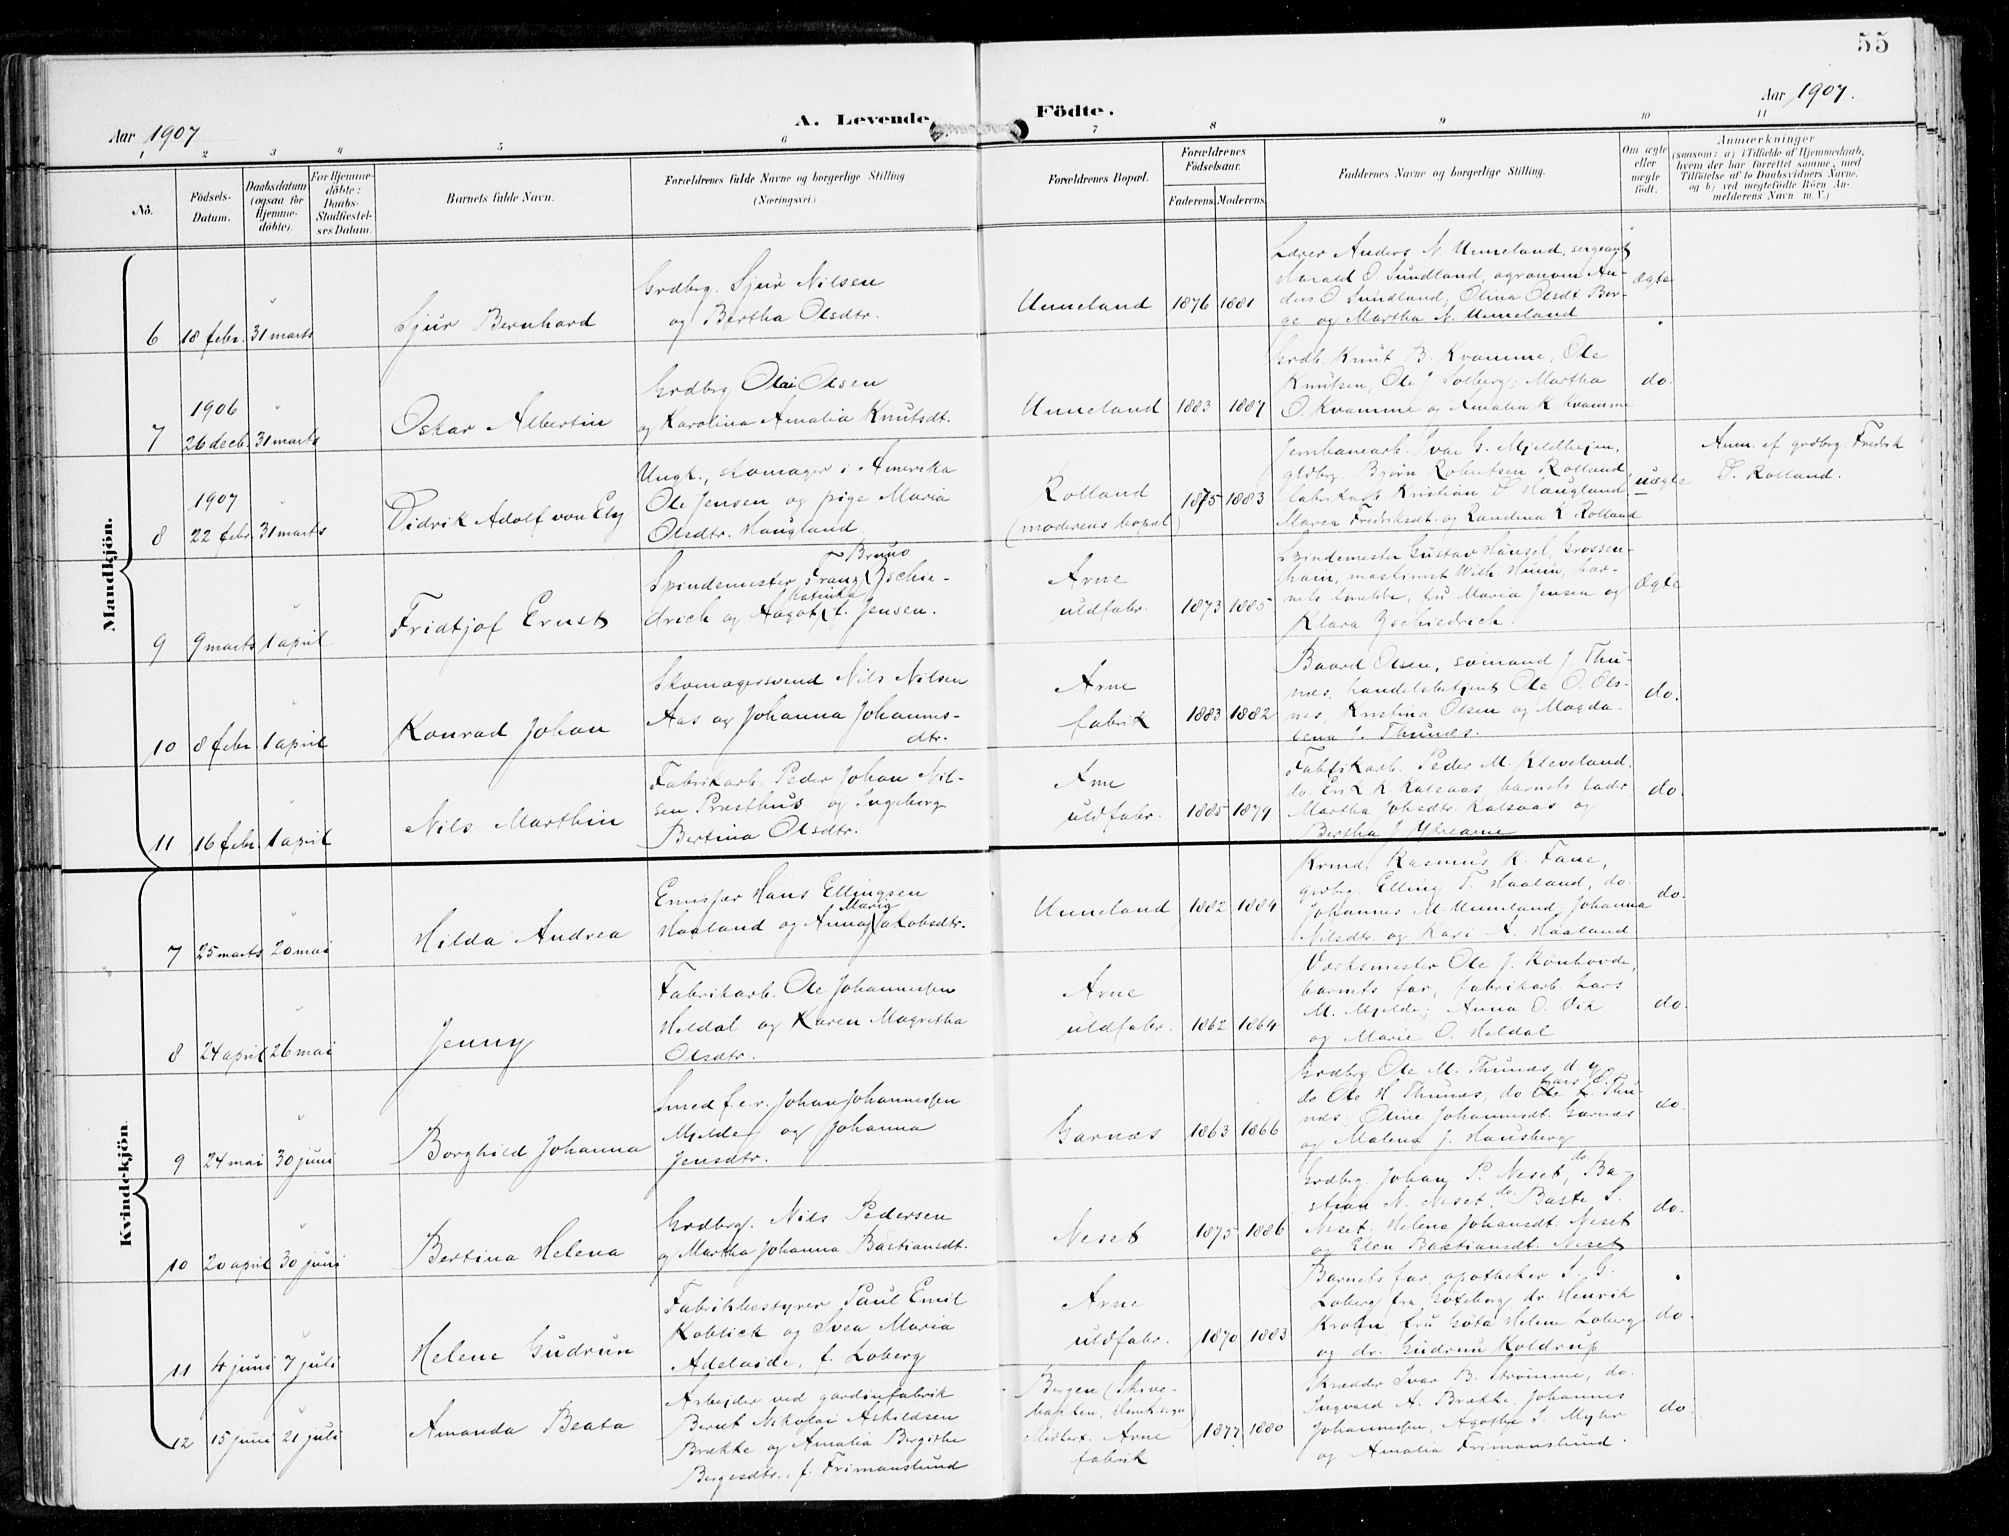 55
Aar 1907
A. Levende
Födte.
Aar 1907.
1 2 3 4 5 6 7 8 9 10 11
No.
Födsels-
Datum.
Daabsdatum
(ogsaa for
Hjemme-
döbte).
For Hjemme-
döbte:
Daabs-
Stadfæstel-
ses Datum.
Barnets fulde Navn.
Forældrenes fulde Navne og borgerlige Stilling.
(Næringsvei.)
Forældrenes Bopæl.
Forældrenes
Födselsaar.
Faderens. Moderens.
Faddernes Navne og borgerlige Stilling.
Om ægte
eller
uægte
født.
Anmærkninger
(saasom: a) i Tilfælde af Hjemmedaab,
hvem der har forrettet samme, med
Tilföielse af to Daabsvidners Navne.
og b) ved uægtefödte Börn An-
melderens Navn m V.)
Mandkjön.
6 18 febr. 31 marts
Sjur Bernhard
Grdbrg. Sjur Nilsen
og Bertha Olsdtr.
Unneland 1876 1881
Lærer Anders N. Unneland, sergeant
Harald O. Sundland, agronom An-
ders O. Sundland; Olina Olsdt. Ber-
ge og Martha N. Unneland
ægte
7 1906
26 decb. 31 marts
Oskar Albertin
Grdbrg. Olai Olsen
og Karolina Amalia Knutsdt.
Unneland 1883 1887
Grdb. Knut B. Kvamme, Ole
Knutsen, Ole J. Solberg; Martha
O. Kvamme og Amalia K. Kvamme
do.
8 1907
22 febr. 31 marts
Didrik Adolf von Ely
Ungk., skomager i Amerika
Ole Jensen og pige Maria
Olsdtr. Haugland
Rolland
(moderens bopæl)
1875 1883
Jernbanearb. Ivar G. Mjeldheim,
grdbrg. Bjørn Robertsen Rolland,
Kristian D. Haugland
Maria Fredriksdt. og Randina K. Rolland
uægte
Anm. af grdbrg. Fredrik
D. Rolland.
9 9 marts 1 april
Fridtjof Ernst
Spindemester Franz Bruno Zschie-
drich og Aagot Katinka f. Jensen.
Arne
uldfabr.
1873 1885
Spindemester Gustav Hänsel, Grossen-
hain, maskinist Wilh. bar-
nets fru Maria Jensen og
Klara Zschiedrich.
ægte
10 8 febr. 1 april
Konrad Johan
Skomagersvend Nils Nilsen
Aas og Johanna Johannes-
dtr.
Arne
fabrik
1883 1882
Baard Olsen, sømand J. Thu-
næs, handelsbetjent Ole O. Ols-
nes, Kristina Olsen og Magda-
lena J. Thunæs.
do.
11 16 febr. 1 april
Nils Marthin
Fabrikarb. Peder Johan Nil-
sen Præsthus og Ingeborg
Bertina Olsdtr.
Arne
uldfabr.
1885 1879
Fabrikarb. Peder M. Kleveland,
do. Erik K. Kalsaas, barnets fader
Martha Johsdtr. Kalsaas og
Bertha J.
do.
Kvindekjön.
7 25 marts 20 mai
Hilda Andrea
Emisjær Hans Ellingsen
Haaland og Anna Maria Jakobsdtr.
Unneland 1882 1884
Krmd. Rasmus K. Fane,
grdbrg. Elling T. Haaland, do.
Johannes M. Unneland, Johanna
Nilsdtr. og Kari A. Haaland
do.
8 24 april 26 mai
Jenny
Fabrikarb. Ole Johannessen
Heldal og Karen Magretha
Olsdtr.
Arne
uldfabr.
1862 1864
Værksmester Ole J. Rønhovde,
barnets far, fabrikarb. Lars
M. Mjelde; Anna O. Vik
og Marie O. Heldal
do.
9 24 mai 30 juni
Borghild Johanna
Smed f.e.v. Johan Johannessen
Mjelde og Johanna
Jensdtr.
Garnæs 1863 1866
Grdbrg. Ole M. Thunæs d. y.
do Ole H. Thunæs, do Lars O. Thu-
næs, Oline Johannesdt. Garnæs
og Malena J. Hausberg
do.
10 20 april 30 juni
Bertina Helena
Grdbrg. Nils Pedersen
og Martha Johanna Bastiansdt.
Neset 1875 1886
Grdbrg. Johan P. Neset, do. Ba-
stian N. Neset, do. Baste S.
Neset, Helena Johansdt. Neset
og Elen Bastiansdt. Neset
do.
11 4 juni 7 juli
Helene Gudrun
Fabrikbestyrer Paul Emil
Koblick og Svea Maria
Adelaide, f. Loberg
Arne
uldfabr.
1870 1883
Barnets far, apotheker S. G.
Loberg fra Gøteborg dr. Henrik
Krohn, fru Gøta Helene Loberg
og dr. Gudrun Koldrup
do.
12 15 juni 21 juli
Amanda Beata
Arbejder ved gardinfabrik
Bernt Nikolai Askildsen
Brække og Amalia Bergithe
Bergesdtr., f. Frimanslund
Bergen
Arne
fabrik
1877 1880
Skrædder Ivar B. Strømme, do.
Ingvald A. Brække, Johannes
Johannessen, Agothe S. Myhr
og Amalia Frimanslund.
do.